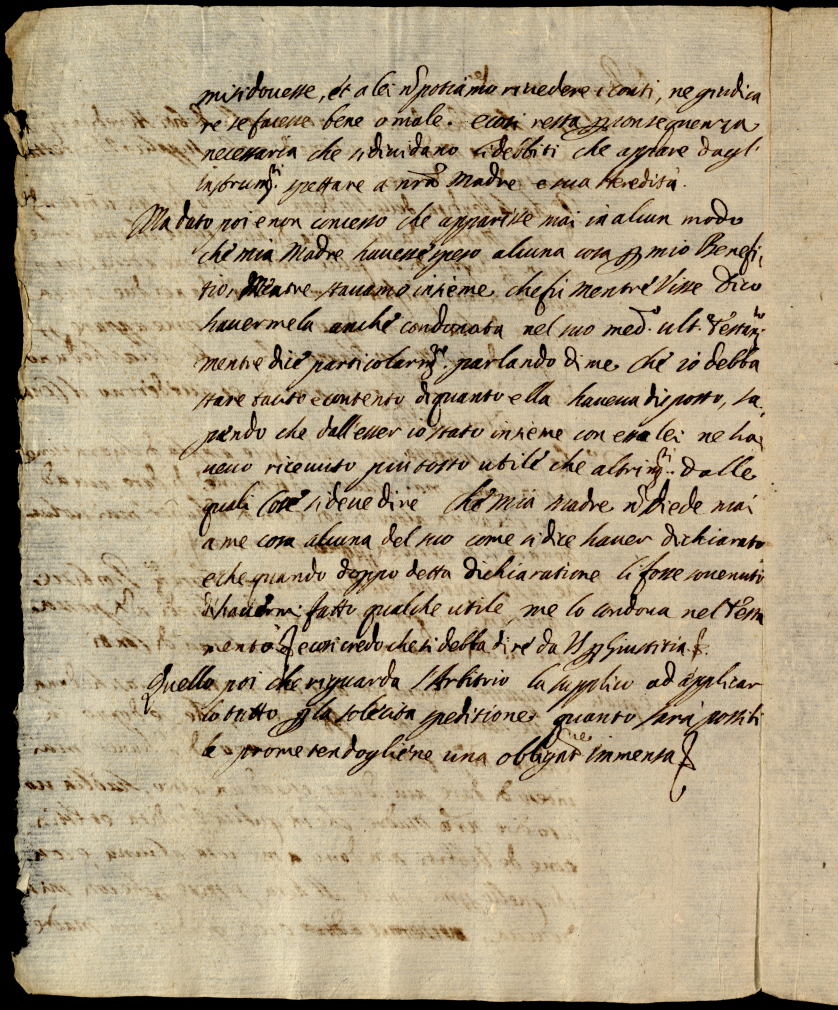 mi si dovesse, et a lei nõ possiamo rivedere i conti, ne giudica
re se facesse bene o male. e così resta p conseguenza
necessaria che si dividano li debbiti che appare dagl'
instrum.ti spettare a nrã Madre e sua heredità.
Ma dato poi e non concesso che apparisse mai in alcun modo
che mia Madre havesse speso alcuna cosa p mio Benefi,
tio, Mentre stavamo insieme che fù mentre Visse Dico
havermela anche condonata nel suo med.o ult.o Testam.to
mentre dice particolarm.te parlando di me che io debba
stare tacito e contento di quanto ella haveva disposto, sa,
pendo che dall'esser io stato insieme con essa lei ne ha,
vevo ricevuto più tosto utile che altrim.ti. Dalle
quali Cose si deve dire che mia Madre nõ diede mai
a me cosa alcuna del suo come si dice haver dichiarato
e che quando doppo detta dichiaratione li fosse sovenuto
d'havermi fatto qualche utile, me lo condona nel Testa
mento e così credo che si debba dire da VS p Giustitia.
Quello poi che riguarda l'Arbitrio la supplico ad applicar
lo tutto p la solecita speditione quanto sarà possibi
le prometendogliene una obligat.ne immensa